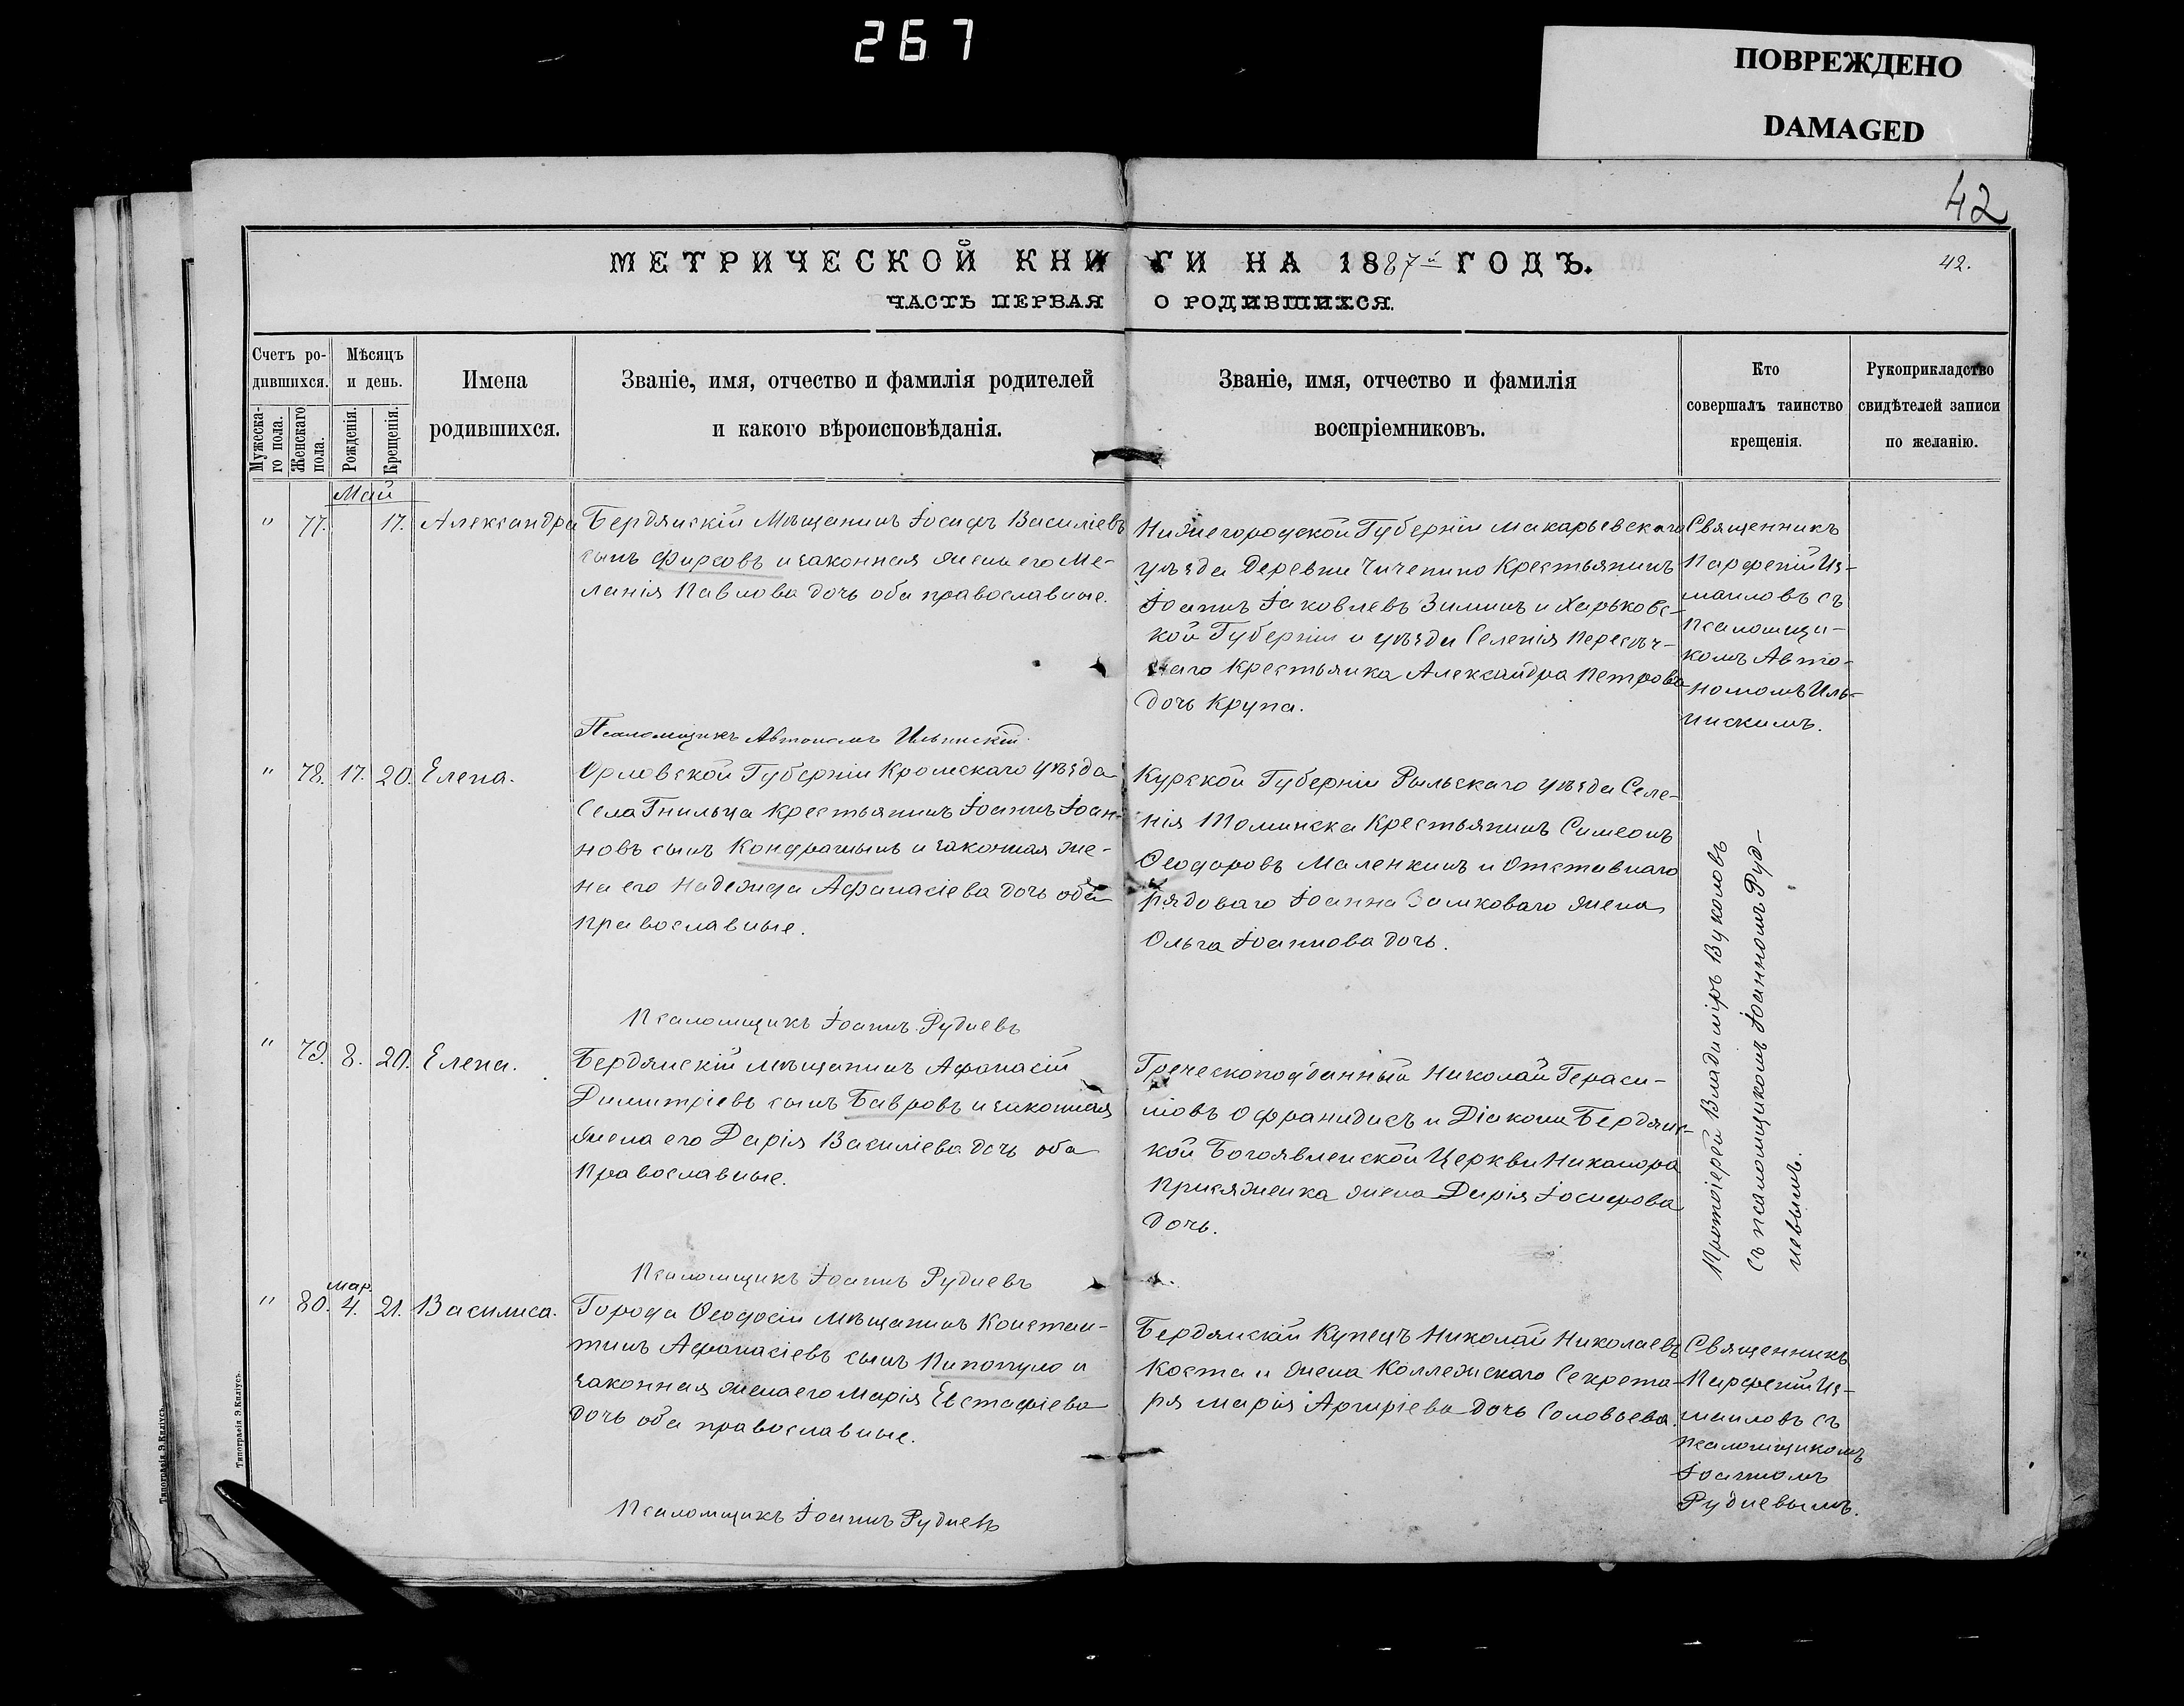 267
ПОВРЕЖДЕНО
DAMAGED
42
МЕТРИЧЕСКОЙ КНИГИ НА 1887й ГОДЪ.
42.
ЧАСТЬ ПЕРВАЯ О РОДИВШИХСЯ.
Счетъ ро-
дившихся.
Мужеска-
го пола.
Женскаго
пола.
Мѣсяцъ
и день.
Рожденія.
Крещенія.
Имена
родившихся.
Званіе, имя, отчество и фамилія родителей
и какого вѣроисповѣданія.
Званіе, имя, отчество и фамилія
воспріемниковъ.
Кто
совершалъ таинство
крещенія.
Рукоприкладство
свидѣтелей записи
по желанію.
Май
" 77. 17. Александра
Бердянскій Мѣщанинъ Іосифъ Василіевъ
сынъ Фирсовъ и законная жена его Ме-
ланія Павлова дочь оба православные.
Нижегородской Губерніи Макарьевскаго
уѣзда Деревни Чичепино Крестьянинъ
Іоаннъ Іаковлевъ Зиминъ и Харьковс-
кой Губерніи и уѣзда Селенія Пересѣч-
наго Крестьянка Александра Петрова
дочь Крупа.
Священникъ
Парфеній Из-
маиловъ съ
псаломщи-
комъ Авто-
номомъ Иль-
инскимъ.
Псаломщикъ Автономъ Ильинскій.
" 78. 17. 20. Елена.
Орловской Губерніи Кромскаго уѣзда
Села Гнильца Крестьянинъ Іоаннъ Іоан-
новъ сынъ Кондрашынъ и законная же-
на его Надежда Афанасіева дочь оба
православные.
Курской Губерніи Рыльскаго уѣзда Селе-
нія Томинска Крестьянинъ Симеонъ
Ѳеодоровъ Маленкинъ и Отставнаго
рядоваго Іоанна Замковаго жена
Ольга Іоаннова дочь.
Псаломщикъ Іоаннъ Рудневъ
" 79. 8. 20. Елена.
Бердянскій мѣщанинъ Афанасій
Димитріевъ сынъ Бавровъ и законная
жена его Дарія Василіева дочь оба
Православные.
Греческоподданный Николай Гераси-
мовъ Офранидисъ и Діакона Бердянс-
кой Богоявленской Церкви Никанора
Присяженка жена Дарія Іосифова
дочь.
Протоіерей Владиміръ Вуколовъ
съ псаломщикомъ Іоанномъ Руд-
невымъ.
Псаломщикъ Іоаннъ Рудневъ
мар.
" 80. 4. 21. Василиса.
Города Ѳеодосіи Мѣщанинъ Констан-
тинъ Афанасіевъ сынъ Пипопуло и
законная жена его Марія Евстафіева
дочь оба православные.
Бердянскій Купецъ Николай Николаевъ
Коста и жена Коллежскаго Секрета-
ря Марія Аргиріева дочь Соловьева.
Священникъ
Парфеній Из-
маиловъ съ
псаломщикомъ
Іоанномъ
Рудневымъ.
Псаломщикъ Іоаннъ Рудневъ
Типографія Э. Киліусъ.
Типографія Э. Киліусъ.